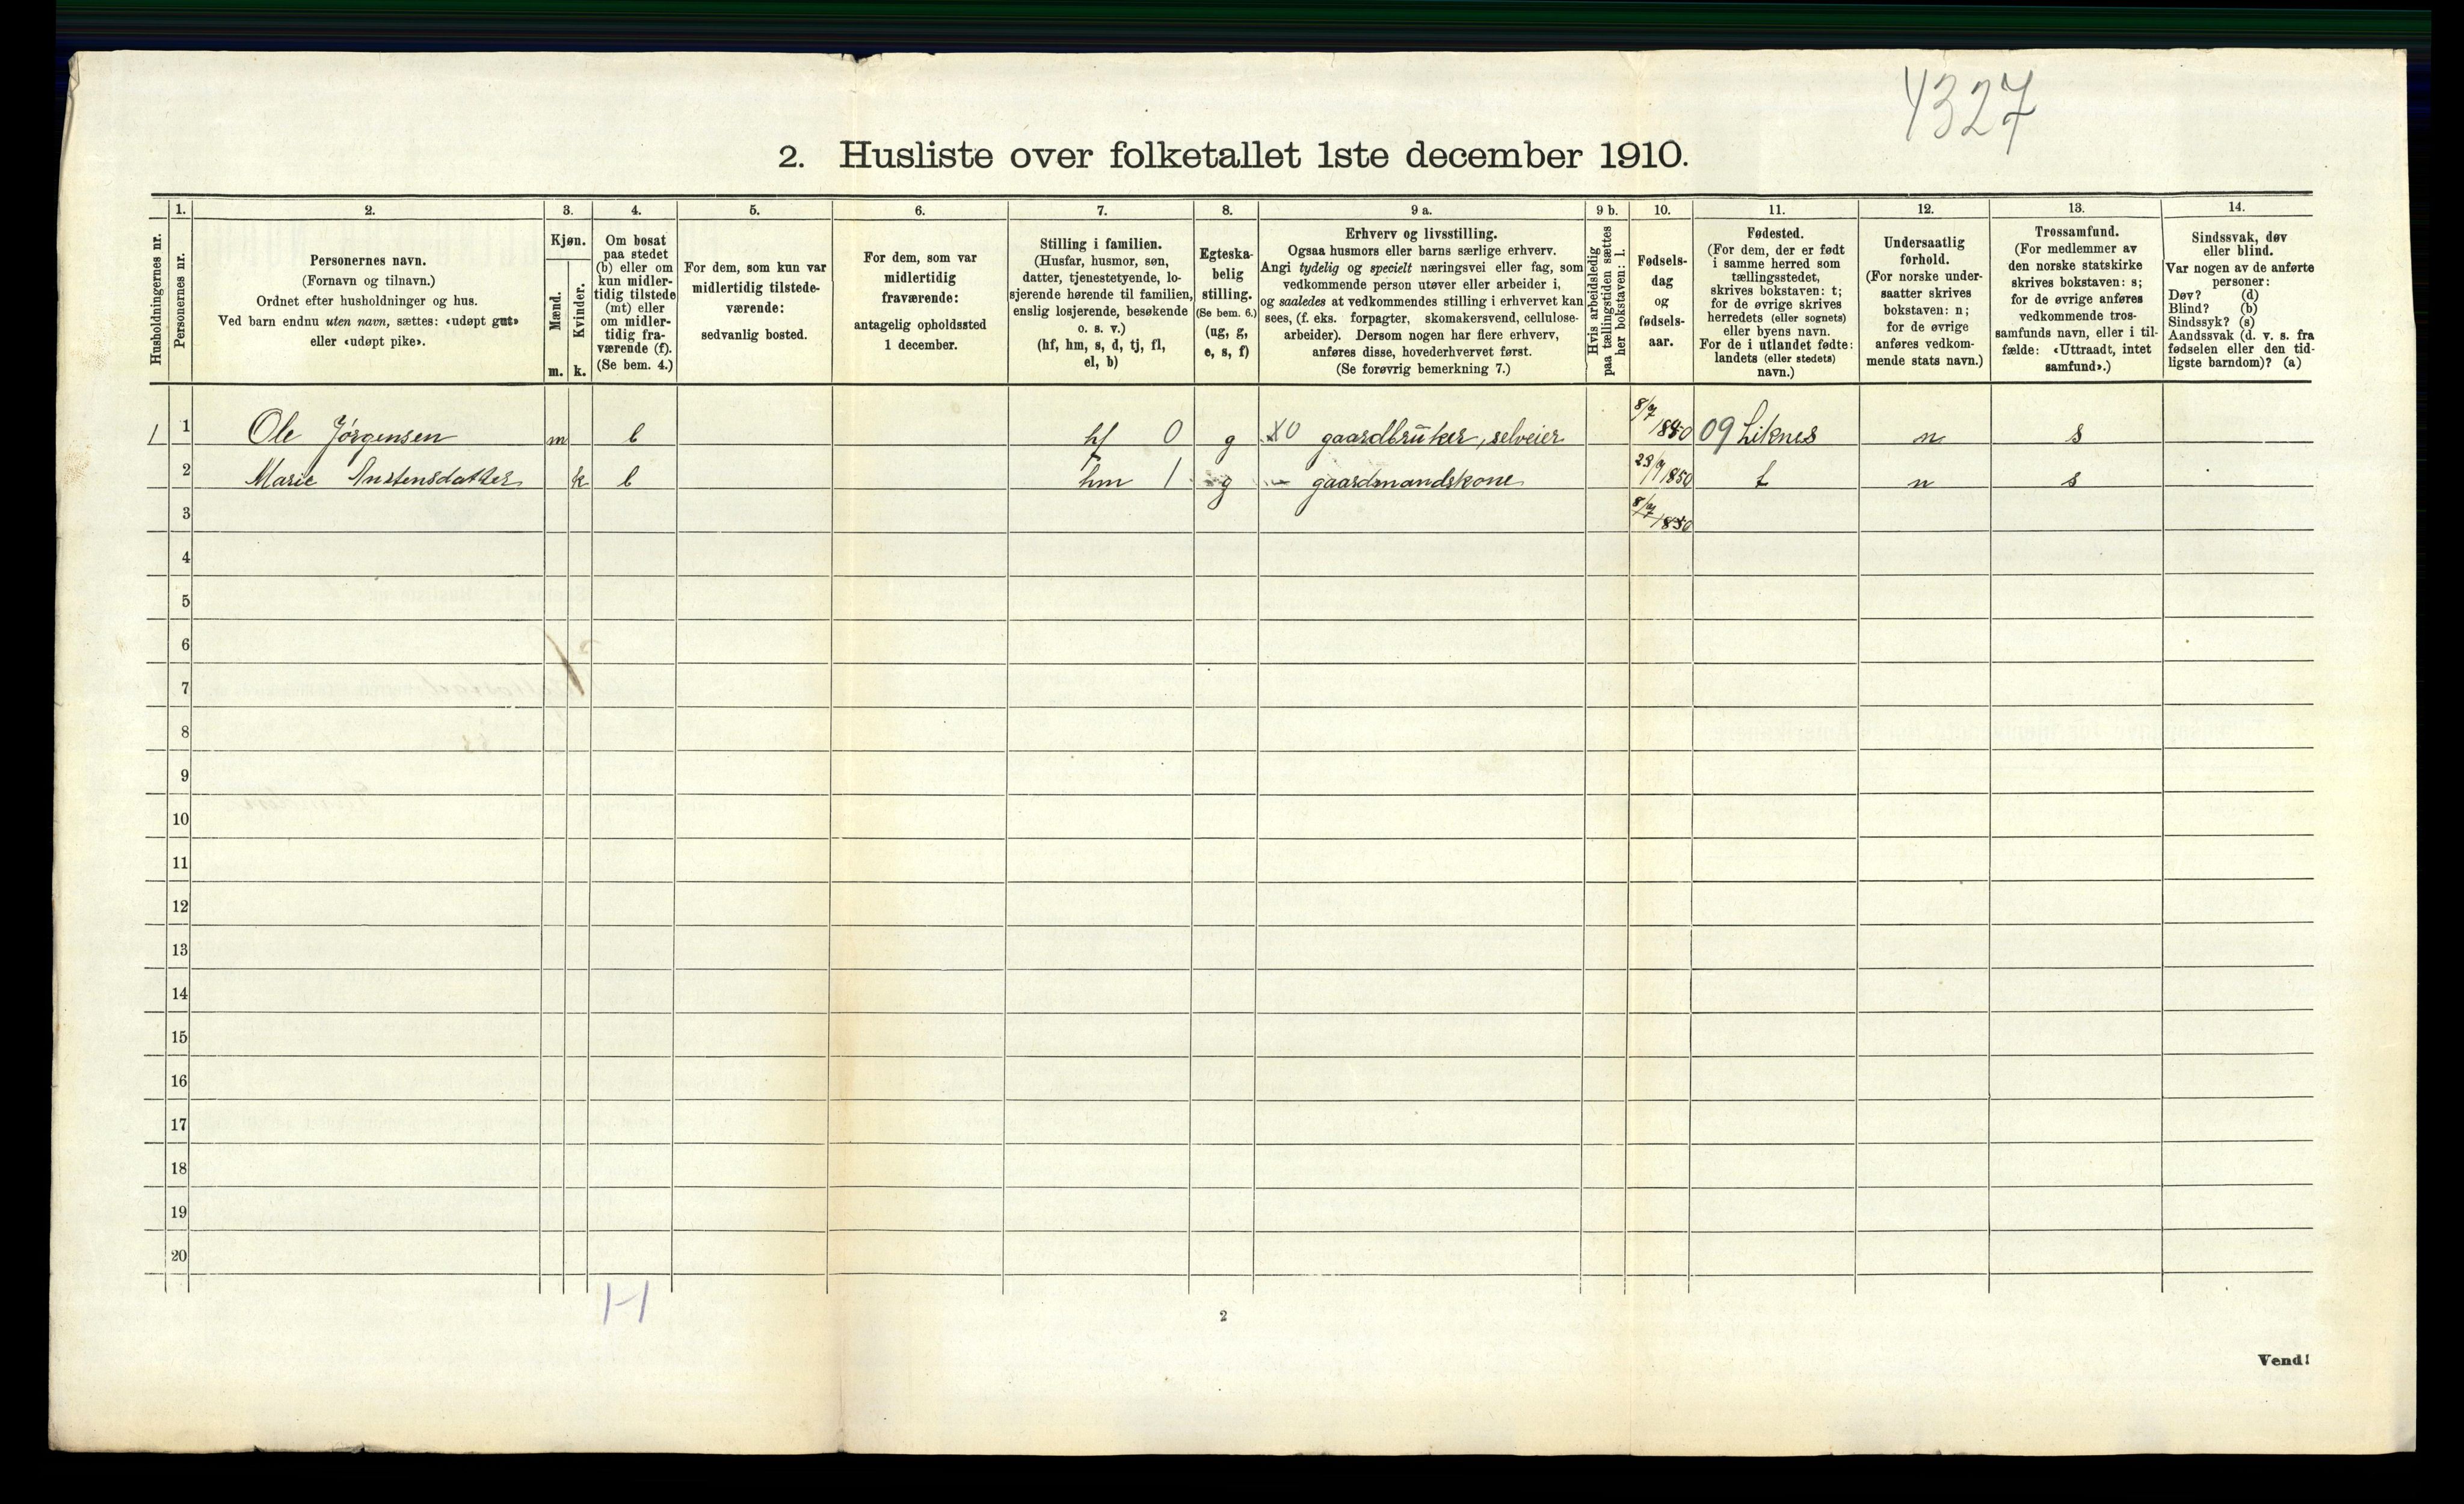 4327
2. Husliste over folketallet 1ste december 1910.
Husholdningernes nr.
1.
Personernes nr.
2.
Personernes navn.
(Fornavn og tilnavn.)
Ordnet efter husholdninger og hus.
Ved barn endnu uten navn, sættes: «udøpt gut»
eller «udøpt pike».
3.
Kjøn.
Mænd.
Kvinder.
m. k.
4.
Om bosat
paa stedet
(b) eller om
kun midler-
tidig tilstede
(mt) eller
om midler-
tidig fra-
værende (f).
(Se bem. 4.)
5.
For dem, som kun var
midlertidig tilstede-
værende:
sedvanlig bosted.
6.
For dem, som var
midlertidig
fraværende:
antagelig opholdssted
1 december.
7.
Stilling i familien.
(Husfar, husmor, søn,
datter, tjenestetyende, lo-
sjerende hørende til familien,
enslig losjerende, besøkende
o. s. v.)
(hf, hm, s, d, tj, fl,
el, b)
8.
Egteska-
belig
stilling.
(Se bem. 6.)
(ug, g,
e, s, f)
9 a.
Erhverv og livsstilling.
Ogsaa husmors eller barns særlige erhverv.
Angi tydelig og specielt næringsvei eller fag, som
vedkommende person utøver eller arbeider i,
og saaledes at vedkommendes stilling i erhvervet kan
sees, (f. eks. forpagter, skomakersvend, cellulose-
arbeider). Dersom nogen har flere erhverv,
anføres disse, hovederhvervet først.
(Se forøvrig bemerkning 7.)
9 b.
Hvis arbeidsledig
paa tællingstiden sættes
her bokstaven: l.
10.
Fødsels-
dag
og
fødsels-
aar.
11.
Fødested.
(For dem, der er født
i samme herred som
tællingsstedet,
skrives bokstaven: t;
for de øvrige skrives
herredets (eller sognets)
eller byens navn.
For de i utlandet fødte:
landets (eller stedets)
navn.)
12.
Undersaatlig
forhold.
(For norske under-
saatter skrives
bokstaven: n;
for de øvrige
anføres vedkom-
mende stats navn.)
13.
Trossamfund.
(For medlemmer av
den norske statskirke
skrives bokstaven: s;
for de øvrige anføres
vedkommende tros-
samfunds navn, eller i til-
fælde: «Uttraadt, intet
samfund».)
14.
Sindssvak, døv
eller blind.
Var nogen av de anførte
personer:
Døv? (d)
Blind? (b)
Sindssyk? (s)
Aandssvak (d. v. s. fra
fødselen eller den tid-
ligste barndom)? (a)
1 1 Ole Jörgensen m b hf 0 g X0 gaardbruker, selveier 8/7 1850 09 Liknes n s
2 Marie Anstensdatter k b hm 1 g - gaardmandskone 1850 t n s
3 8/7 1850
4
5
6
7
8
9
10
11
12
13
14
15
16
17
18
19
20
1-1
2
Vend!